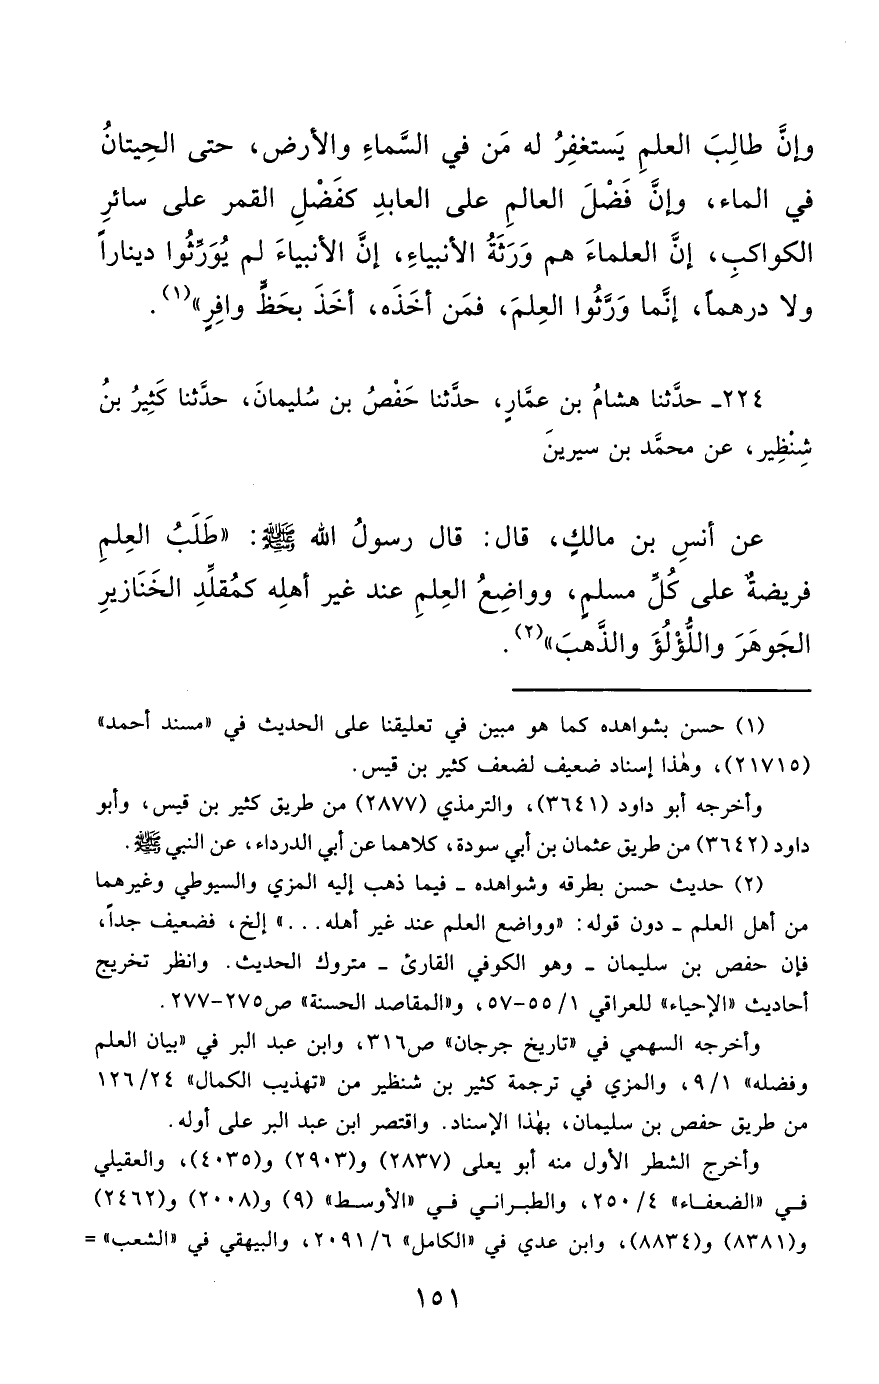 وإنَّ طالِبَ العلمِ يَستغفِرُ له مَن في السَّماءِ والأرض، حتى الحِيتانُ
في الماء، وإنَّ فَضْلَ العالمِ على العابدِ كفَضْلِ القمر على سائرِ
الكواكبِ، إنَّ العلماءَ هم وَرَثَةُ الأنبياءِ، إنَّ الأنبياءَ لم يُوَرِّثُوا ديناراً
ولا درهماً، إنَّما وَرَّثُوا العِلمَ، فمَن أخَذَه، أخَذَ بحَظٍّ وافِرٍ»(١).
٢٢٤ـ حدَّثنا هشامُ بن عمَّارٍ، حدَّثنا حَفْصُ بن سُليمانَ، حدَّثنا كَثِيرُ بنُ
شِنْظِير، عن محمَّد بن سيرينَ
عن أنسِ بن مالكٍ، قال: قال رسولُ الله ﷺ: «طَلَبُ العِلمِ
فريضةٌ على كُلِّ مسلمٍ، وواضِعُ العِلمِ عند غير أهلِه كمُقلِّدِ الخَنَازيرِ
الجَوهَرَ واللُّؤْلُؤَ والذَّهبَ»(٢).
(١) حسن بشواهده كما هو مبين في تعليقنا على الحديث في «مسند أحمد»
(٢١٧١٥)، وهٰذا إسناد ضعيف لضعف كثير بن قيس.
وأخرجه أبو داود (٣٦٤١)، والترمذي (٢٨٧٧) من طريق كثير بن قيس، وأبو
داود (٣٦٤٢) من طريق عثمان بن أبي سودة، كلاهما عن أبي الدرداء، عن النبي ﷺ.
(٢) حديث حسن بطرقه وشواهده ـ فيما ذهب إليه المزي والسيوطي وغيرهما
من أهل العلم ـ دون قوله: «وواضع العلم عند غير أهله...» إلخ، فضعيف جداً،
فإن حفص بن سليمان ـ وهو الكوفي القارئ ـ متروك الحديث. وانظر تخريج
أحاديث «الإحياء» للعراقي ١/ ٥٥-٥٧، و«المقاصد الحسنة» ص٢٧٥-٢٧٧.
وأخرجه السهمي في «تاريخ جرجان» ص٣١٦، وابن عبد البر في «بيان العلم
وفضله» ١/ ٩، والمزي في ترجمة كثير بن شنظير من «تهذيب الكمال» ٢٤/ ١٢٦
من طريق حفص بن سليمان، بهٰذا الإسناد. واقتصر ابن عبد البر على أوله.
وأخرج الشطر الأول منه أبو يعلى (٢٨٣٧) و(٢٩٠٣) و(٤٠٣٥)، والعقيلي
في «الضعفاء» ٤/ ٢٥٠، والطبراني في «الأوسط» (٩) و(٢٠٠٨) و(٢٤٦٢)
و(٨٣٨١) و(٨٨٣٤)، وابن عدي في «الكامل» ٦/ ٢٠٩١، والبيهقي في «الشعب» =
١٥١